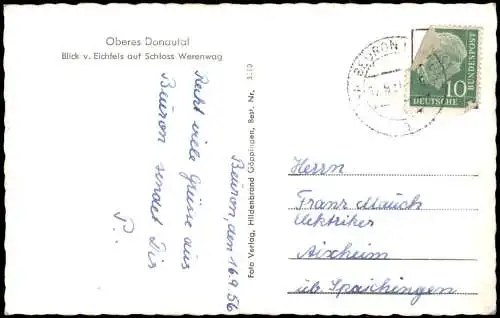 Oberes Donautal
Blick v. Eichfels auf Schloss Werenwag
Beuron, den 16.9.56
Recht viele Grüsse aus
Beuron sendet Dir
P..
Foto Verlag, Hildenbrand Göppingen, Best. Nr.
BEURON
10
DEUTSCHE
BUNDESPOST
Herrn
Franz Mauch
Elektriker
Aixheim
üb. Spaichingen